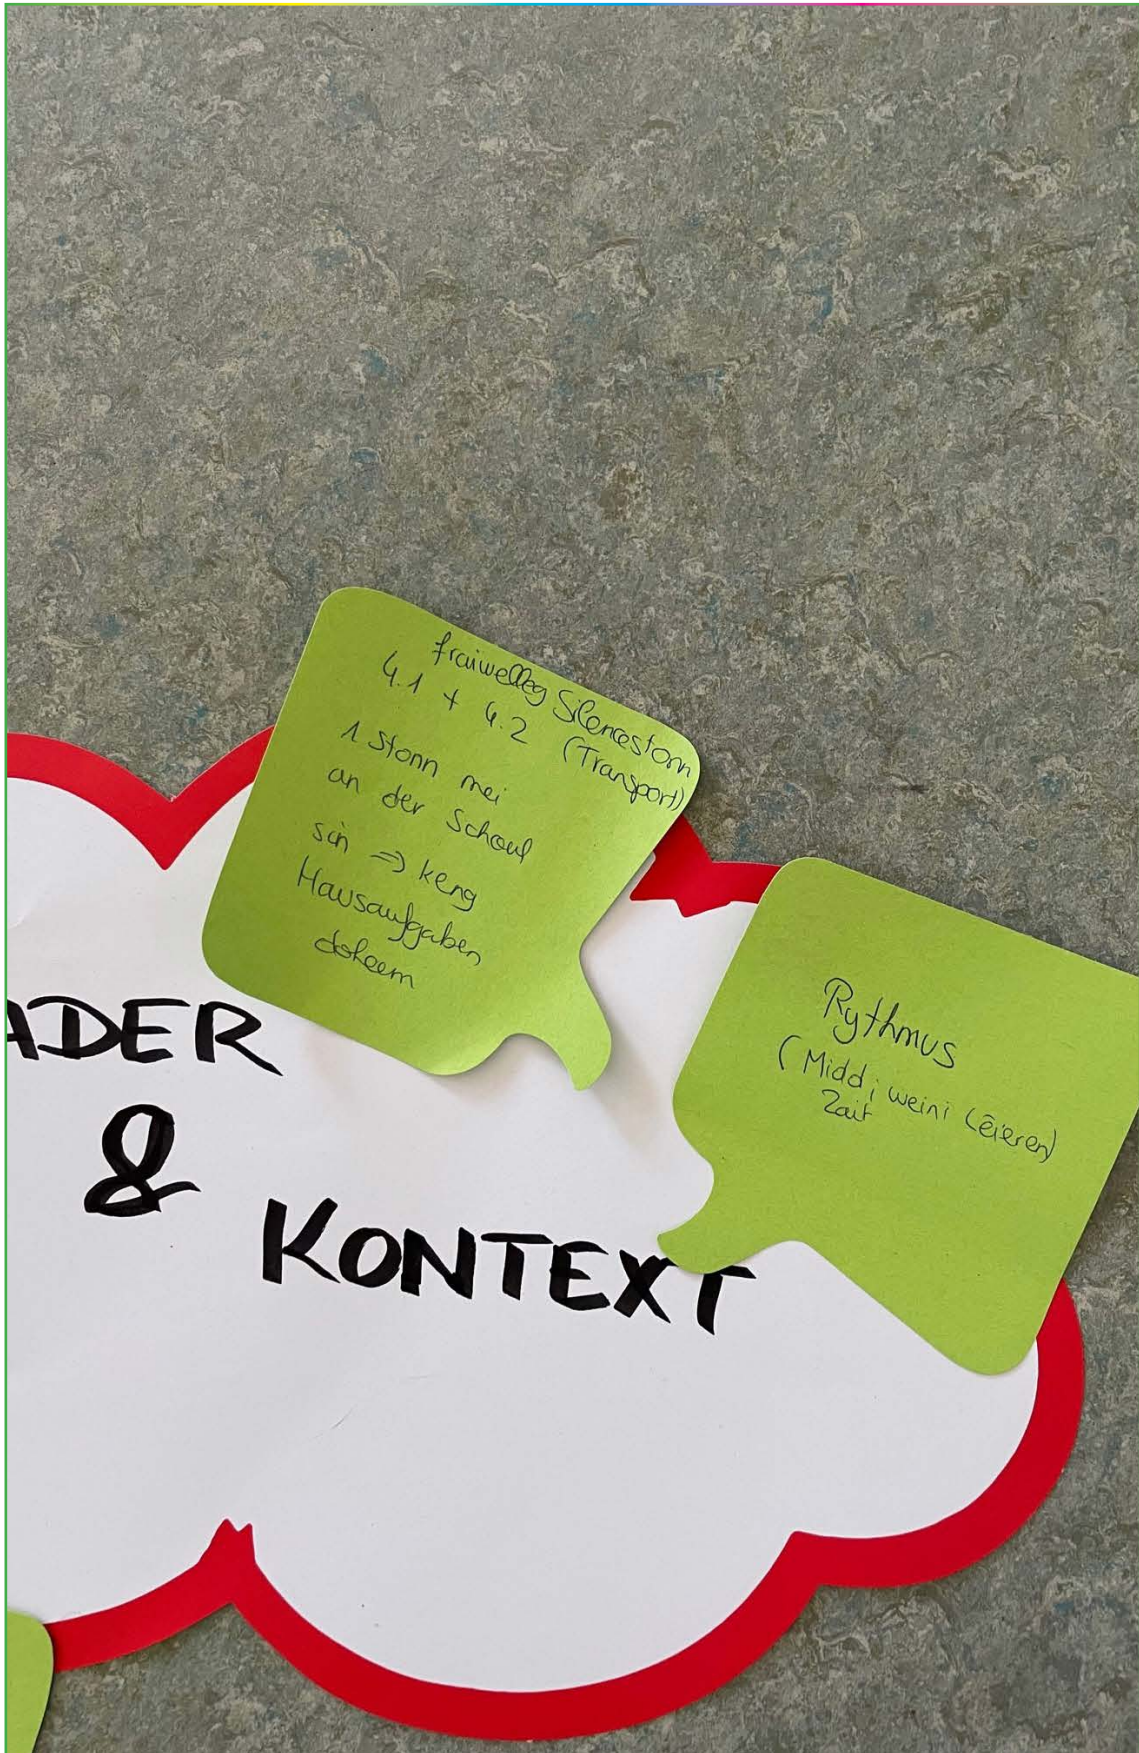 fraiwelleg Silencestonn
4.1 + 4.2 (Transport)
1 Stonn mei
an der Schoul
sin => keng
Hausaufgaben
doheem
Rythmus
(Midd; weini Léieren)
Zait
ADER
&
KONTEXT